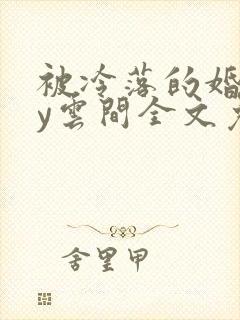 被冷落的婚
y雲間全文免
舍里甲